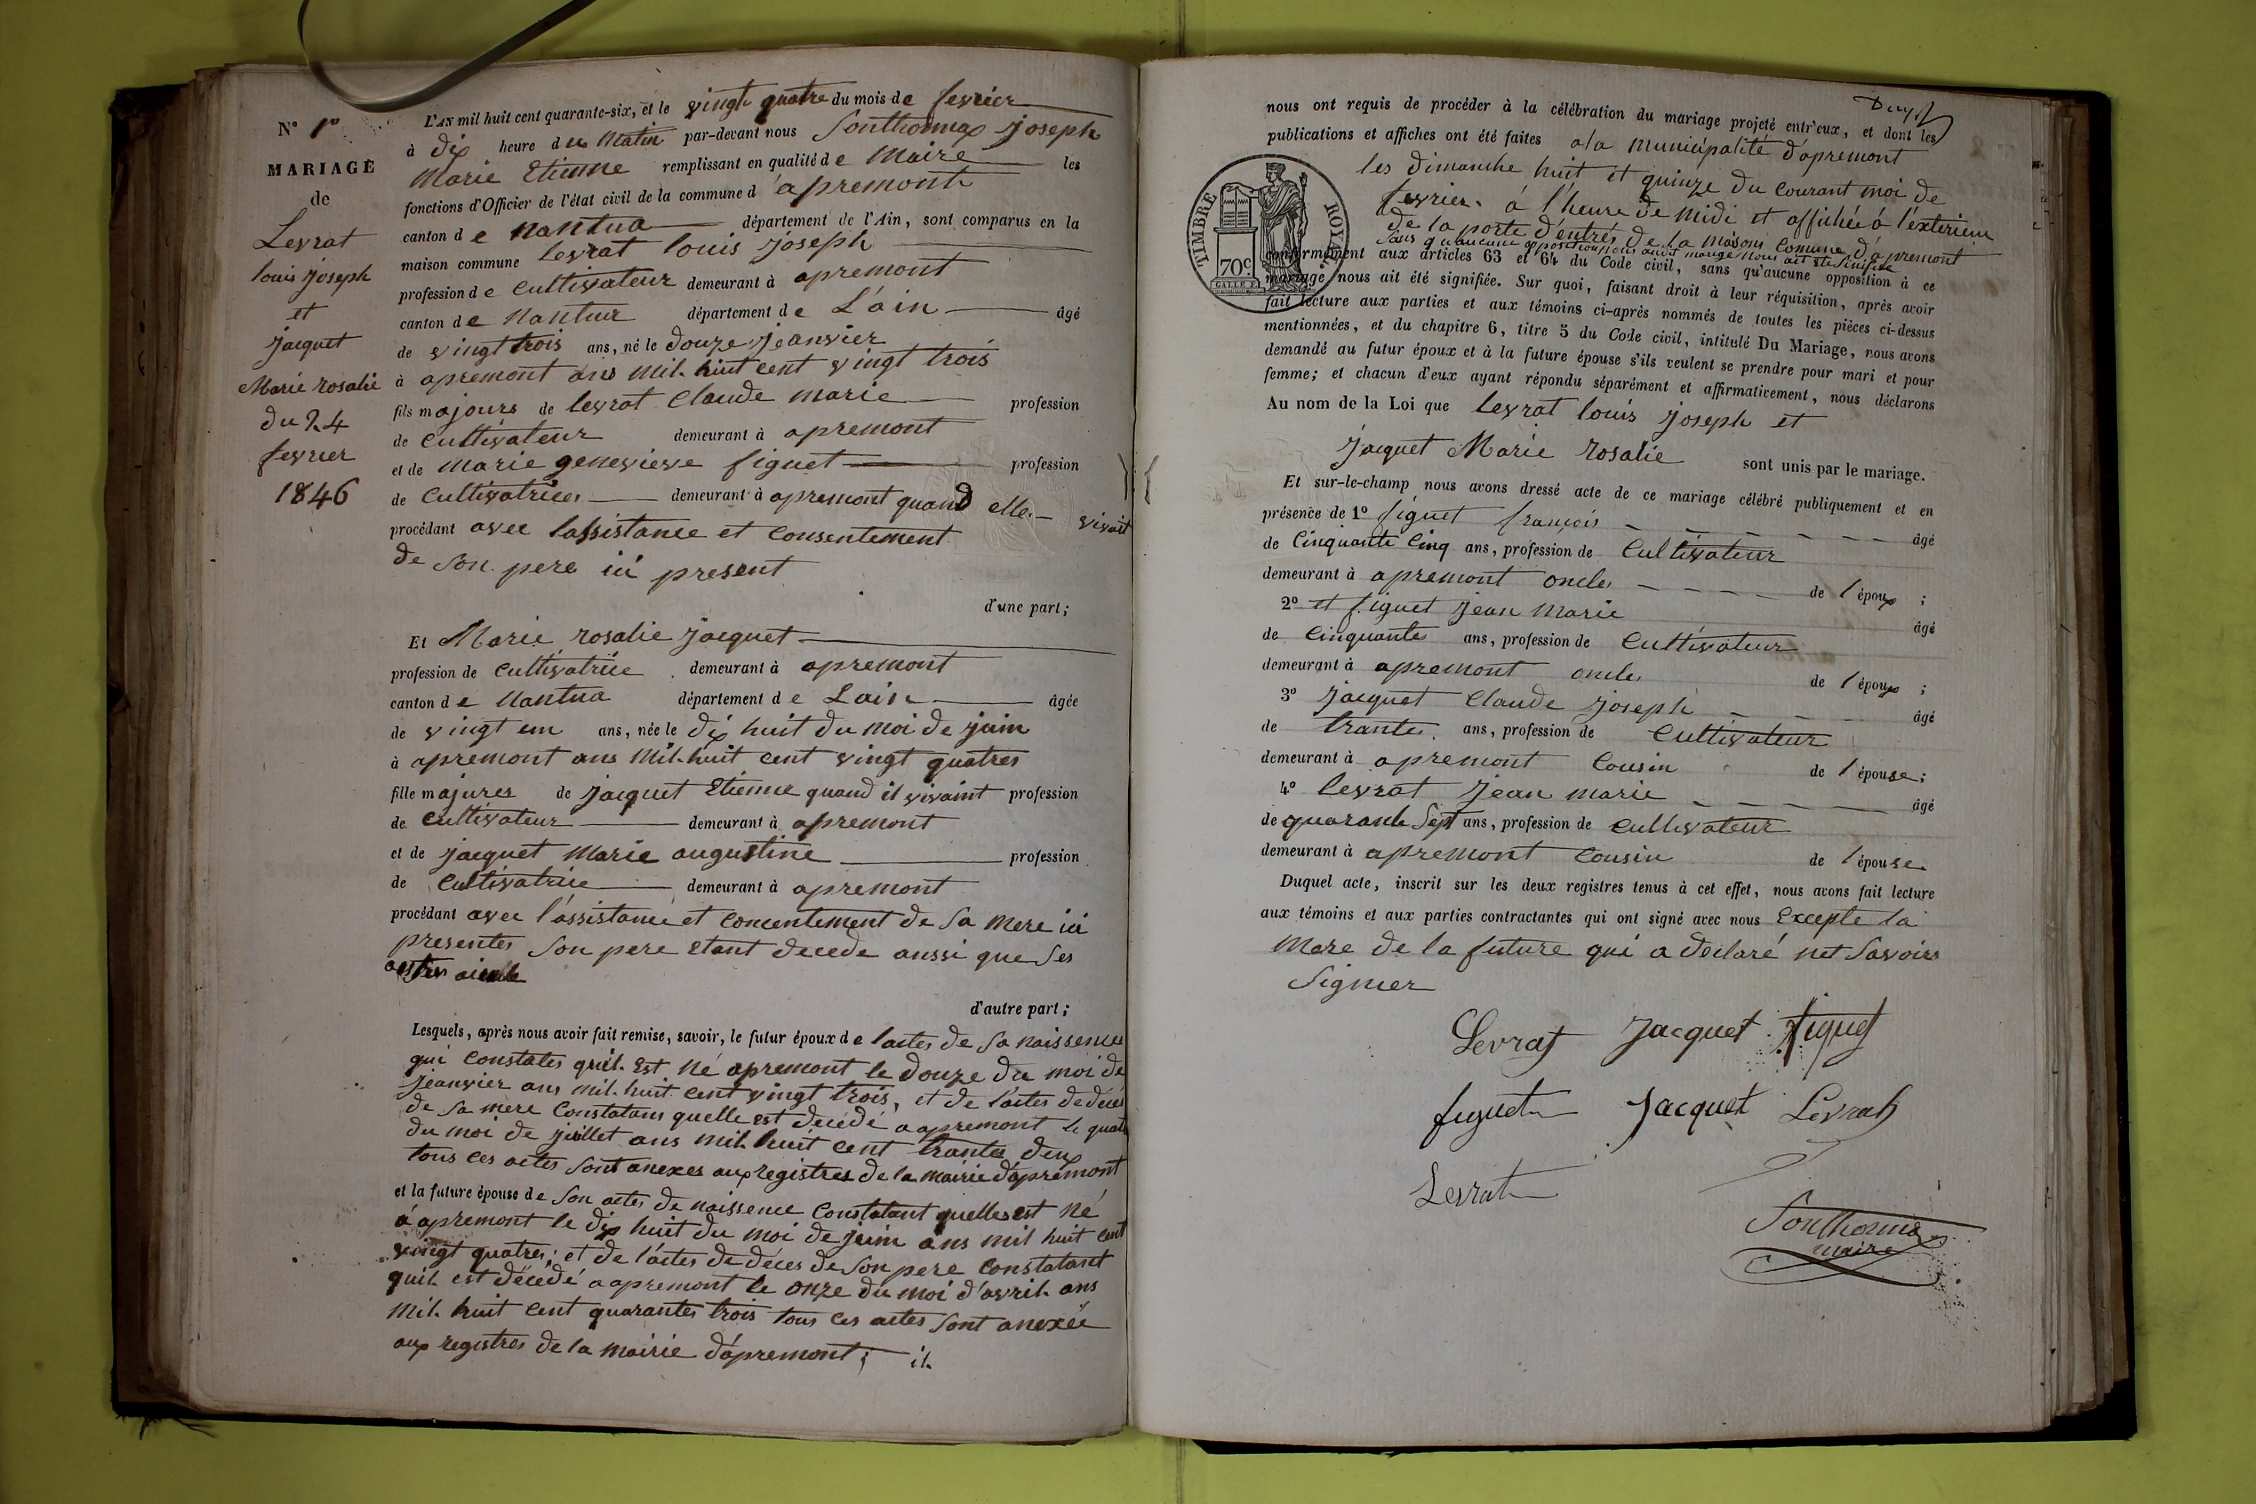 N° 1er
MARIAGE
de
Levrat
louis joseph
et
jacquet
Marie rosalie
du 24
fevrier
1846
L'AN mil huit cent quarante-six, et le vingt quatre du mois de fevrier
à dix heure du matin par-devant nous Sonthonnax joseph
marie Etienne remplissant en qualité de maire les
fonctions d'Officier de l'état civil de la commune d'apremont
canton de nantua département de l'Ain, sont comparus en la
maison commune levrat louis joseph
profession de cultivateur demeurant à apremont
canton de nantua département de L'ain âgé
de vingt trois ans, né le douze jeanvier
à apremont ans mil huit cent vingt trois
fils majours de levrat Claude marie profession
de cultivateur demeurant à apremont
et de marie genevieve figuet profession
de cultivatrices demeurant à apremont quand elle vivait
procédant avec lassistance et consentement
de son pere ici present
d'une part;
Et Marie rosalie jacquet
profession de cultivatriie demeurant à apremont
canton de nantua département de Lain âgée
de vingt un ans, née le dix huit du moi de juin
à apremont ans mil huit cent vingt quatres
fille majures de jacquet Etienne quand il vivaint profession
de cultivateur demeurant à apremont
et de jacquet marie augustine profession
de cultivatriie demeurant à apremont
procédant avec l'assistance et concentement de sa mere ici
presentes son pere etant decede aussi que ses
d'autre part;
Lesquels, après nous avoir fait remise, savoir, le futur époux de lactes de sa naissences
qui constates quil est né apremont le douze du moi de
jeanvier ans mil huit cent vingt trois, et de lactes de déces
de sa mere constatans quelle est decédé a apremont le quatre
du moi de juillet ans mil huit cent trantes deux
tous ces actes sont anexes aux registres de la mairie d'apremont
et la future épouse de son actes de naissence constatant quelles est né
à apremont le dix huit du moi de juin ans mil huit cent
vingt quatres; et de l'actes de déces de son pere constatant
quil est décédé a apremont le onze du moi d'avril ans
mil huit cent quarantes trois tous ces actes sont anexée
aux registres de la mairie d'apremont; il
nous ont requis de procéder à la célébration du mariage projeté entr'eux, et dont les
publications et affiches ont été faites a la municipalité d'apremont
les dimanche huit et quinze du courant moi de
fevrier à l'heure de midi et affichée à l'exterieur
de la porte d'entrés de la maisons comune d'apremont
sans qu'aucune opposition audit mariage nous ait ete sinifiée
conformément aux articles 63 et 64 du Code civil, sans qu'aucune opposition à ce
mariage nous ait été signifiée. Sur quoi, faisant droit à leur réquisition, après avoir
fait lecture aux parties et aux témoins ci-après nommés de toutes les pièces ci-dessus
mentionnées, et du chapitre 6, titre 5 du Code civil, intitulé Du Mariage, nous avons
demandé au futur époux et à la future épouse s'ils veulent se prendre pour mari et pour
femme; et chacun d'eux ayant répondu séparément et affirmativement, nous déclarons
Au nom de la Loi que levrat louis joseph et
jacquet Marie rosalie sont unis par le mariage.
Et sur-le-champ nous avons dressé acte de ce mariage célébré publiquement et en
présence de 1° figuet francois âgé
de Cinquante Cinq ans, profession de Cultivateur
demeurant à apremont oncles de l'époux;
2° et figuet jean marie âgé
de cinquantes ans, profession de cultivateur
demeurant à apremont oncles de l'époux;
3° jacquet Claude joseph âgé
de trantes ans, profession de cultivateur
demeurant à apremont Cousin de l'épouse;
4° levrat jean marie âgé
de quarante sept ans, profession de cultivateur
demeurant à apremont cousin de l'épouse
Duquel acte, inscrit sur les deux registres tenus à cet effet, nous avons fait lecture
aux témoins et aux parties contractantes qui ont signé avec nous Excepte la
mere de la future qui a déclaré net savoirs
signer
Levrat Jacquet figuet
figuet Jacquet Levrat
Levrat
Sonthonnax
maire
TIMBRE ROYAL
70c